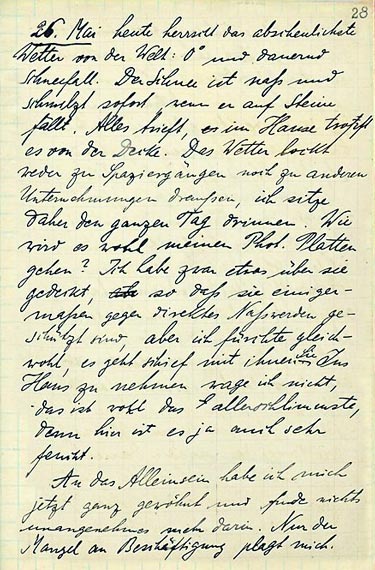 28
26. Mai heute herrscht das abscheulichste
Wetter von der Welt: 0° und dauernd
Schneefall. Der Schnee ist naß und
schmilzt sofort, wenn er auf Steine
fällt. Alles trieft, es im Hause tropft
es von der Decke. Das Wetter lockt
weder zu Spaziergängen noch zu anderen
Unternehmungen draussen, ich sitze
daher den ganzen Tag drinnen. Wie
wird es wohl meinen Phot. Platten
gehen? Ich habe zwar etwas über sie
gedeckt, so daß sie einiger-
maßen gegen direktes Naßwerden ge-
schützt sind, aber ich fürchte gleich-
wohl, es geht schief mit ihnen. Sie Ins
Haus zu nehmen wage ich nicht,
das ist wohl das allerschlimmste,
denn hier ist es ja auch sehr
feucht.
An das Alleinsein habe ich mich
jetzt ganz gewöhnt und finde nichts
unangenehmes mehr darin. Nur der
Mangel an Beschäftigung plagt mich.